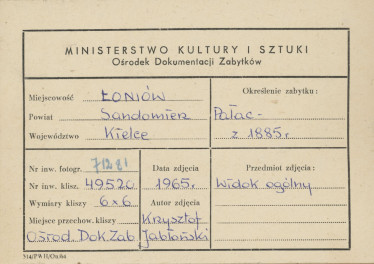 MINISTERSTWO KULTURY I SZTUKI
Ośrodek Dokumentacji Zabytków
Miejscowość ŁONIÓW
Powiat Sandomierz
Województwo Kielce
Określenie zabytku:
Pałac-
z 1885r.
Nr inw. fotogr. 71281
Nr inw. klisz. 49520
Wymiary kliszy 6x6
Miejsce przechow. kliszy
Ośrod. Dok. Zab.
Data zdjęcia
1965r.
Autor zdjęcia
Krzysztof
Jabłoński
Przedmiot zdjęcia:
Widok ogólny